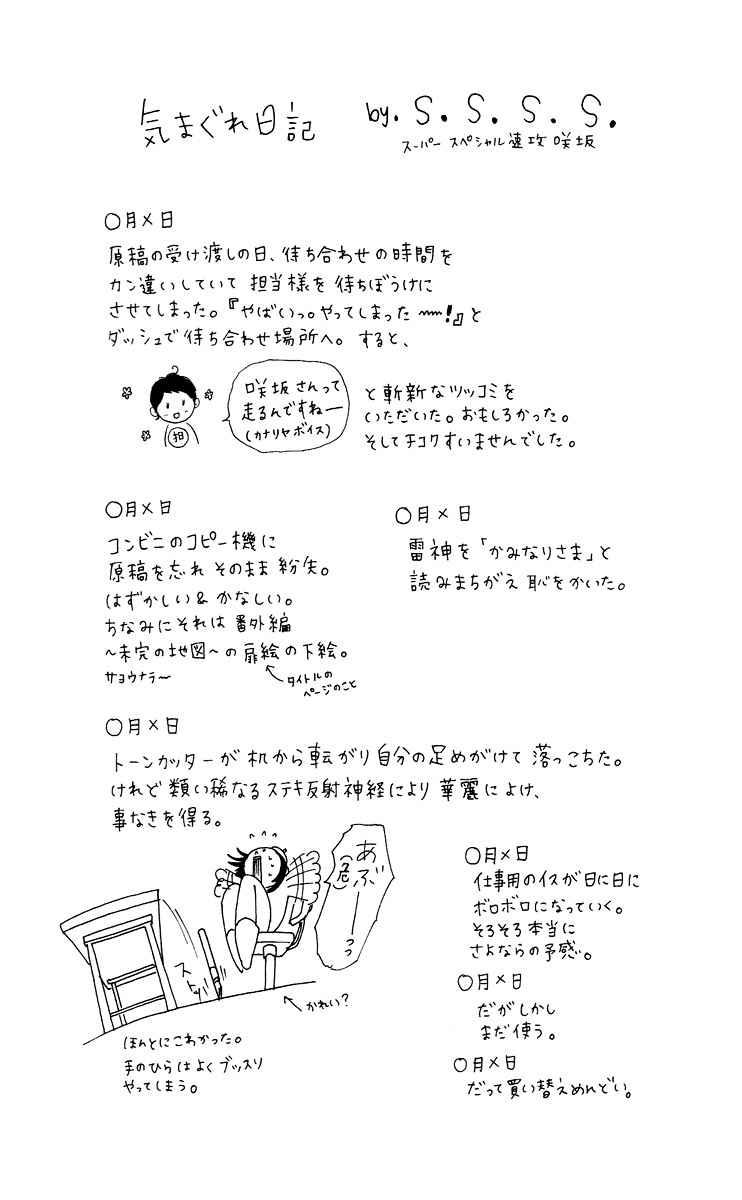 気まぐれ日記
by. S. S. S. S.
スーパー スペシャル速攻 咲坂
○月×日
原稿の受け渡しの日、待ち合わせの時間を
カン違いしていて 担当様を 待ちぼうけに
させてしまった。『やばいっ。やってしまった〜〜!』と
ダッシュで待ち合わせ場所へ。すると、
担
咲坂さんって
走るんですねー
(カナリヤボイス)
と斬新なツッコミを
いただいた。おもしろかった。
そしてチコクすいませんでした。
○月×日
コンビニのコピー機に
原稿を忘れ そのまま 紛失。
はずかしい & かなしい。
ちなみにそれは 番外編
〜未完の地図〜の扉絵の下絵。
タイトルの
ページのこと
サヨウナラ〜
○月×日
雷神を「かみなりさま」と
読みまちがえ 恥をかいた。
○月×日
トーンカッターが 机から転がり自分の足めがけて 落っこちた。
けれど 類い稀なるステキ反射神経により 華麗によけ、
事なきを得る。
あぶ
(危)
ーーっっ
ストッ
かれい?
ほんとにこわかった。
手のひらはよくブッスリ
やってしまう。
○月×日
仕事用のイスが日に日に
ボロボロになっていく。
そろそろ本当に
さよならの予感。
○月×日
だがしかし
まだ使う。
○月×日
だって買い替えめんどい。